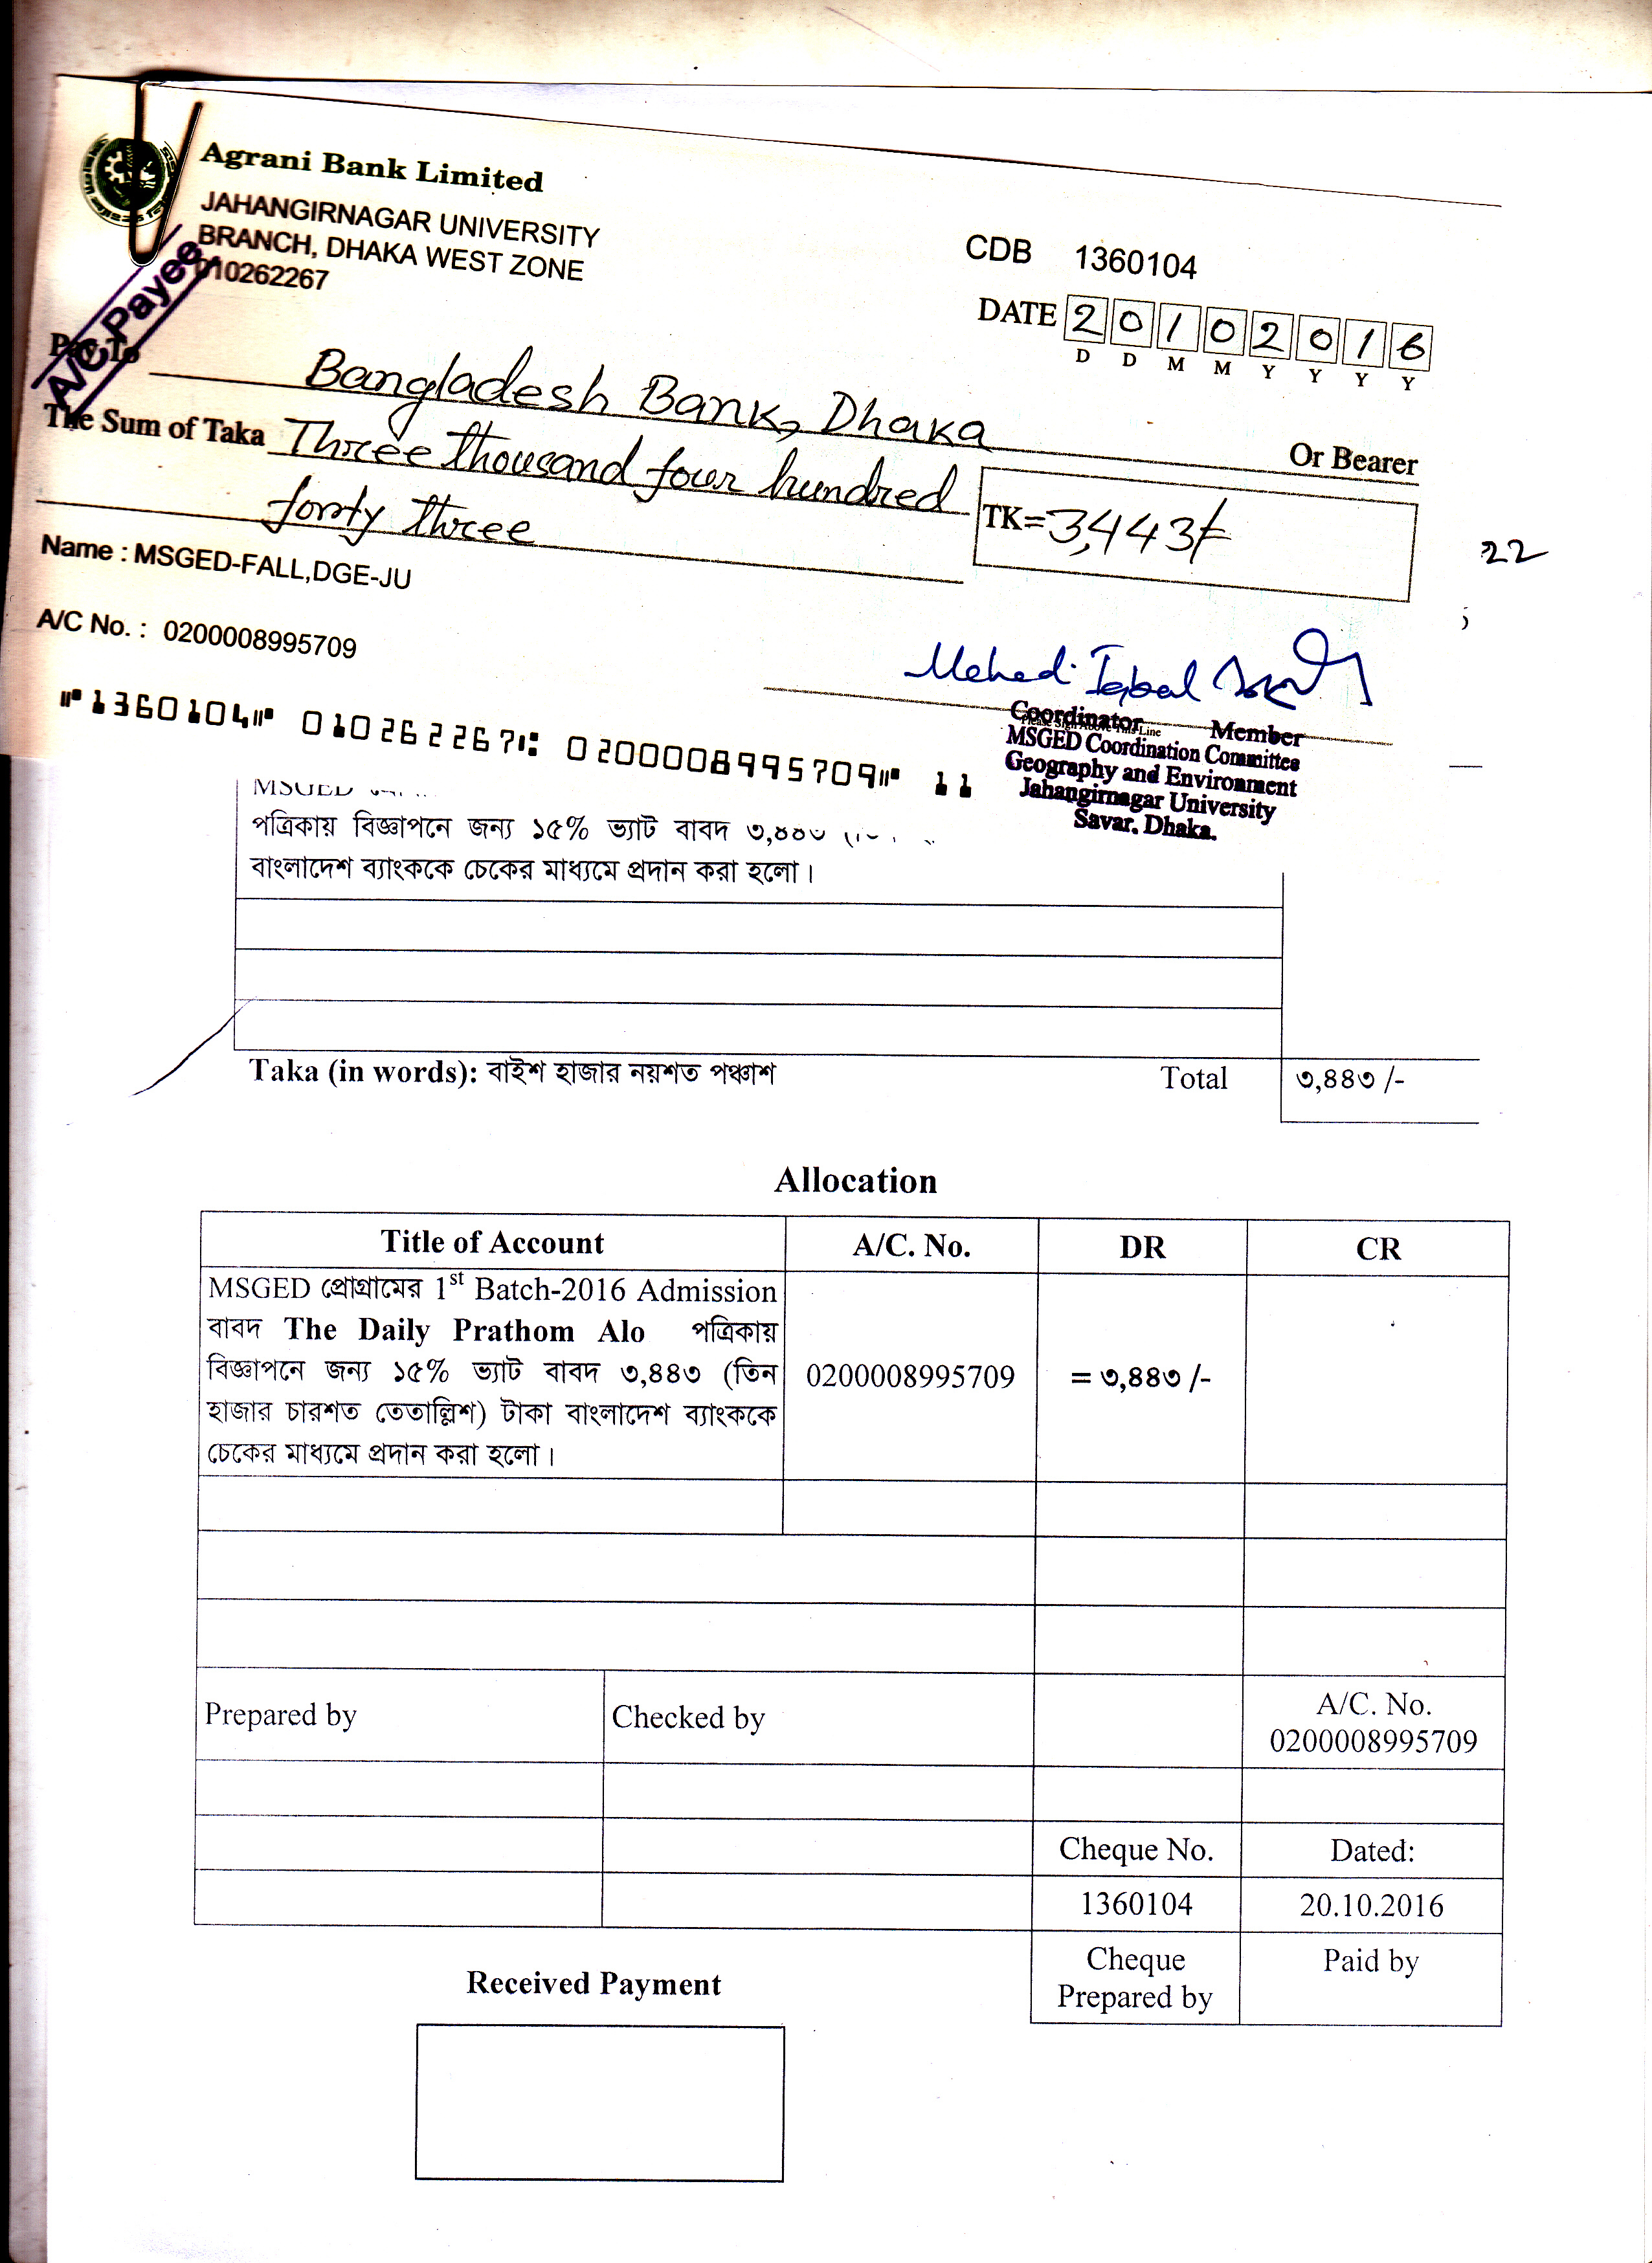 Agrani Bank Limited
JAHANGIRNAGAR UNIVERSITY
BRANCH, DHAKA WEST ZONE
010262267
A/C Payee
CDB 1360104
DATE 2 0 1 0 2 0 1 6
D D M M Y Y Y Y
Pay To Bangladesh Bank, Dhaka
Or Bearer
The Sum of Taka Three thousand four hundred
forty three
TK= 3,443/-
22
Name : MSGED-FALL,DGE-JU
A/C No. : 0200008995709
Mehedi Iqbal
Please Sign Above This Line
Coordinator Member
MSGED Coordination Committee
Geography and Environment
Jahangirnagar University
Savar, Dhaka.
⑈1360104⑈ 010262267⑆ 0200008995709⑈ 11
MSGED
পত্রিকায় বিজ্ঞাপনে জন্য ১৫% ভ্যাট বাবদ ৩,৪৪৩
বাংলাদেশ ব্যাংককে চেকের মাধ্যমে প্রদান করা হলো।
Taka (in words): বাইশ হাজার নয়শত পঞ্চাশ Total ৩,৪৪৩ /-
Allocation
Title of Account A/C. No. DR CR
MSGED প্রোগ্রামের 1st Batch-2016 Admission
বাবদ The Daily Prathom Alo পত্রিকায়
বিজ্ঞাপনে জন্য ১৫% ভ্যাট বাবদ ৩,৪৪৩ (তিন 0200008995709 = ৩,৪৪৩ /-
হাজার চারশত তেতাল্লিশ) টাকা বাংলাদেশ ব্যাংককে
চেকের মাধ্যমে প্রদান করা হলো।
Prepared by Checked by A/C. No.
0200008995709
Cheque No. Dated:
1360104 20.10.2016
Cheque Paid by
Prepared by
Received Payment